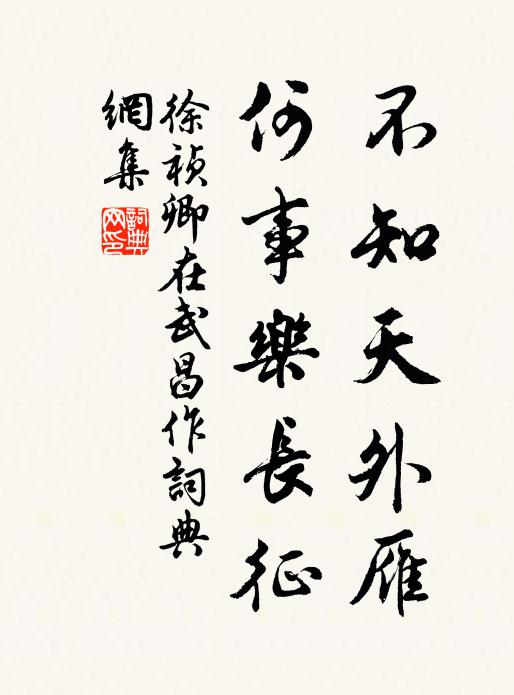 不知天外雁
何事樂長征
徐禎卿在武昌作詞典
網集
詞典
网印